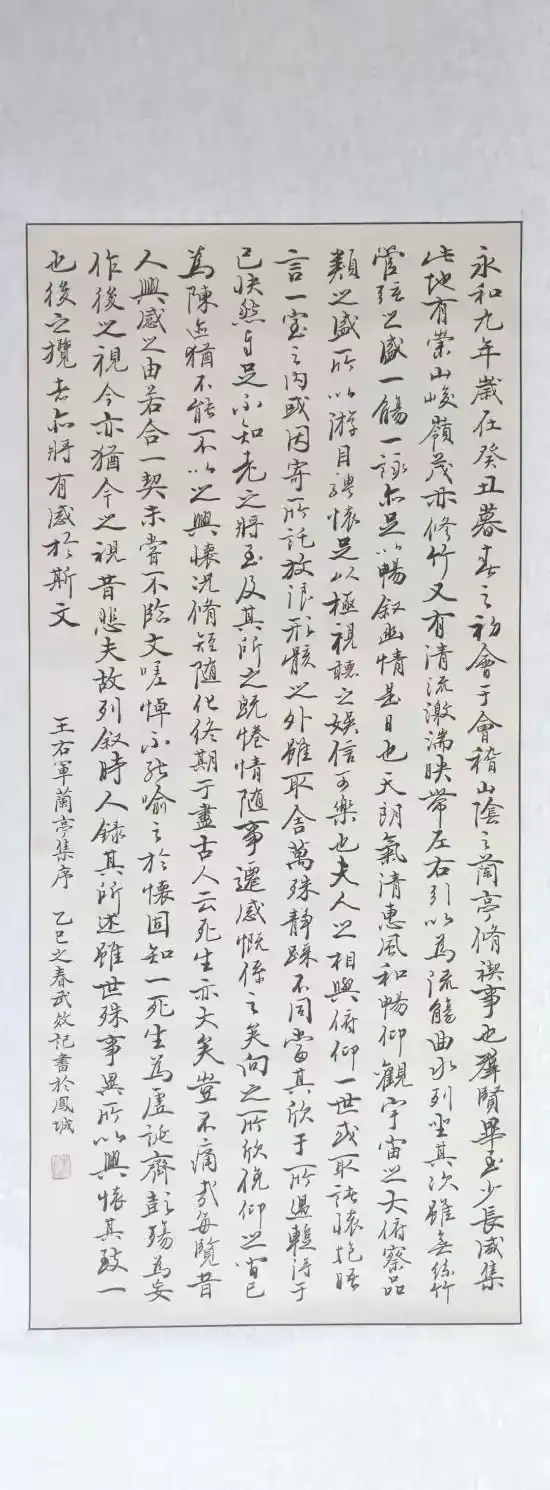 永和九年歲在癸丑暮春之初會于會稽山陰之蘭亭脩禊事也羣賢畢至少長咸集
此地有崇山峻嶺茂林修竹又有清流激湍映帶左右引以為流觴曲水列坐其次雖無絲竹
管弦之盛一觴一詠亦足以暢敘幽情是日也天朗氣清惠風和暢仰觀宇宙之大俯察品
類之盛所以游目騁懷足以極視聽之娛信可樂也夫人之相與俯仰一世或取諸懷抱晤
言一室之內或因寄所託放浪形骸之外雖取舍萬殊靜躁不同當其欣于所遇暫得于
己快然自足不知老之將至及其所之既惓情隨事遷感慨係之矣向之所欣俛仰之間已
為陳迹猶不能不以之興懷況脩短隨化終期于盡古人云死生亦大矣豈不痛哉每覽昔
人興感之由若合一契未嘗不臨文嗟悼不能喻之於懷固知一死生為虛誕齊彭殤為妄
作後之視今亦猶今之視昔悲夫故列敘時人錄其所述雖世殊事異所以興懷其致一
也後之攬者亦將有感於斯文
王右軍蘭亭集序 乙巳之春武效記書於鳳城